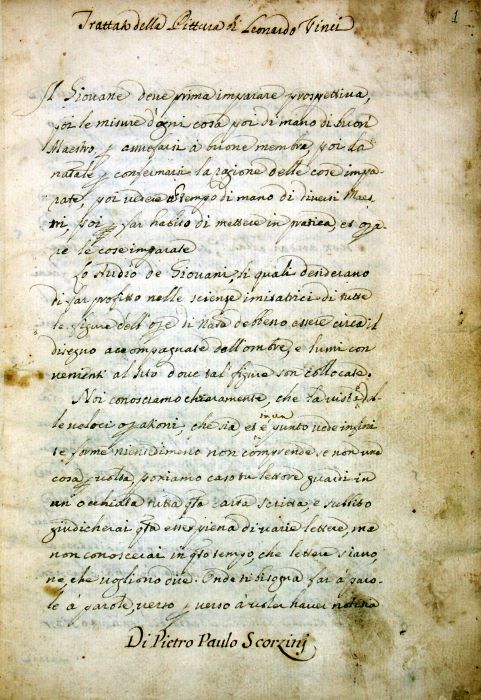 1
Trattato della Pittura di Leonardo Vinci
Il Giovane deve prima imparare prospettiva,
poi le misure d'ogni cosa poi di mano di buon
Maestro, p auuefarsi à buone membre, poi da
natale p confermarsi la ragione delle cose impa
rate, poi vedere un tempo di mano di diversi Maes
tri, poi far habito di mettere in pratica, et ope
rare le cose imparate
Lo studio de Giovani, li quali desiderano
di far profitto nelle scienze imitatrici di tutte
le figure dell'ope di Natà debbeno essere circa il
disegno accompagnato dall'ombre, e lumi con
venienti al sito dove tal figure son collocate.
Noi conosciamo chiaramente, che la vista è dl
le veloci opationi, che sia, et in un punto vede infini
te forme nientedimeno non comprende se non una
cosa p volta, poniamo caso tu lettore guardi in
un occhiata tutta qta carta scritta, e subbito
giudicherai qta esser piena di varie lettere, ma
non conoscerai in qto tempo, che lettere siano,
ne, che vogliono dire. Onde ti bisogna far à paro
le à parole, verso p verso à voler haver notitia
Di Pietro Paulo Scorzinj